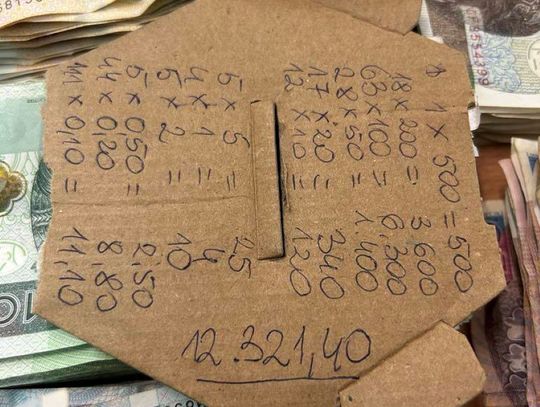 1 × 500 = 500
18 × 200 = 3 600
63 × 100 = 6.300
28 × 50 = 1.400
17 × 20 = 340
12 × 10 = 120
5 × 5 = 25
4 × 1 = 4
5 × 2 = 10
5 × 0,50 = 2,50
44 × 0,20 = 8,80
111 × 0,10 = 11,10
12.321,40